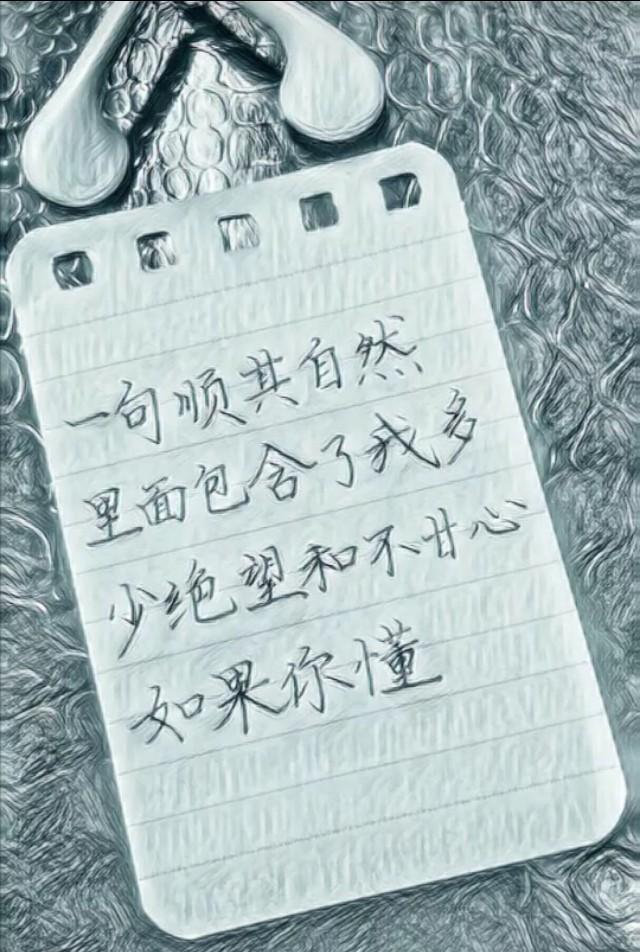 一句顺其自然
里面包含了我多
少绝望和不甘心
如果你懂